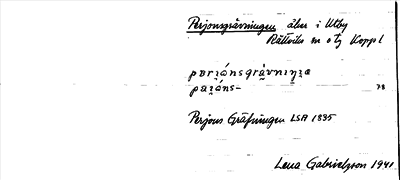 Perjonsgrävningen åker i Utby
Rättvik sn o tg Koppl
pærjånsgrävniŋȝa
paȝåns-
78
Perjons Gräfningen LSA 1835
Lena Gabrielsson 1941